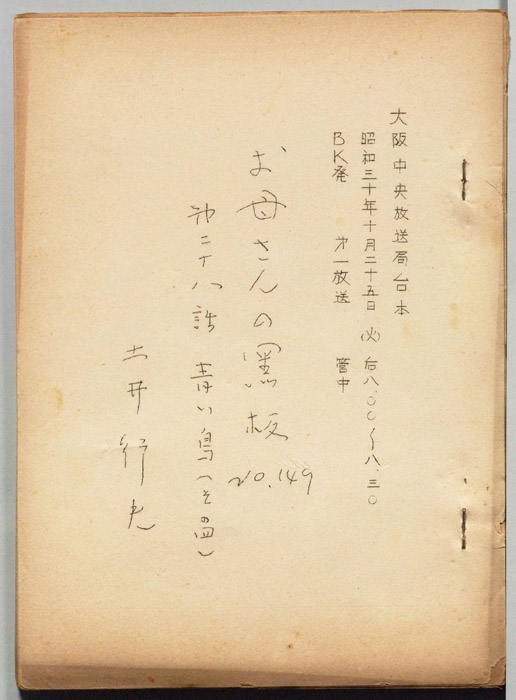 大阪中央放送局台本
昭和三十年十月二十五日 (火) 后八.〇〇〜八.三〇
BK発 才一放送 管中
お母さんの黒板 NO.149
才二十八話 青い鳥(その四)
土井行夫